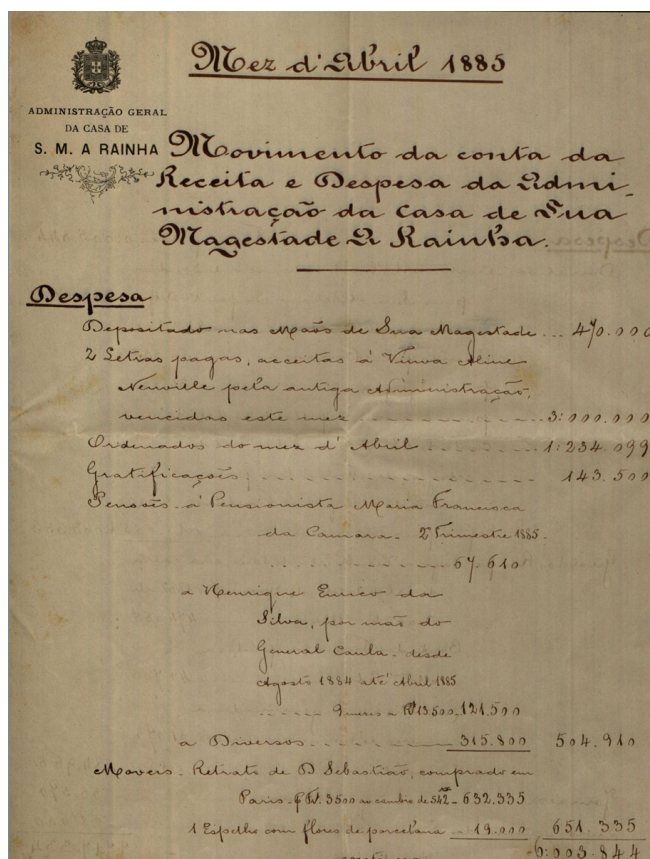 Mez d'Abril 1885
ADMINISTRAÇÃO GERAL
DA CASA DE
S. M. A RAINHA
Movimento da conta da
Receita e Despesa da Admi-
nistração da Casa de Sua
Magestade A Rainha.
Despesa
Depositado nas Maõs de Sua Magestade ... 470.000
2 Letras pagas, acceitas á Viuva Aline
Neuville pela antiga Administração,
vencidas este mez 3:000.000
Ordenados do mez d'Abril 1:234.099
Gratificações 143.500
Pensoẽs - á Pensionista Maria Francisca
da Camara - 2º Trimestre 1885.
67.610
a Henrique Eurico da
Silva, por maõ do
General Caula - desde
Agosto 1884 até Abril 1885
9 mezes a Rs 13.500 - 121.500
a Diversos 315.800 504.910
Moveis - Retrato de D Sebastião, comprado em
Paris - p Fr. 3500 ao cambio de 542 - 632.335
1 Espelho com flores de porcelana - 19.000 651.335
6:003.844